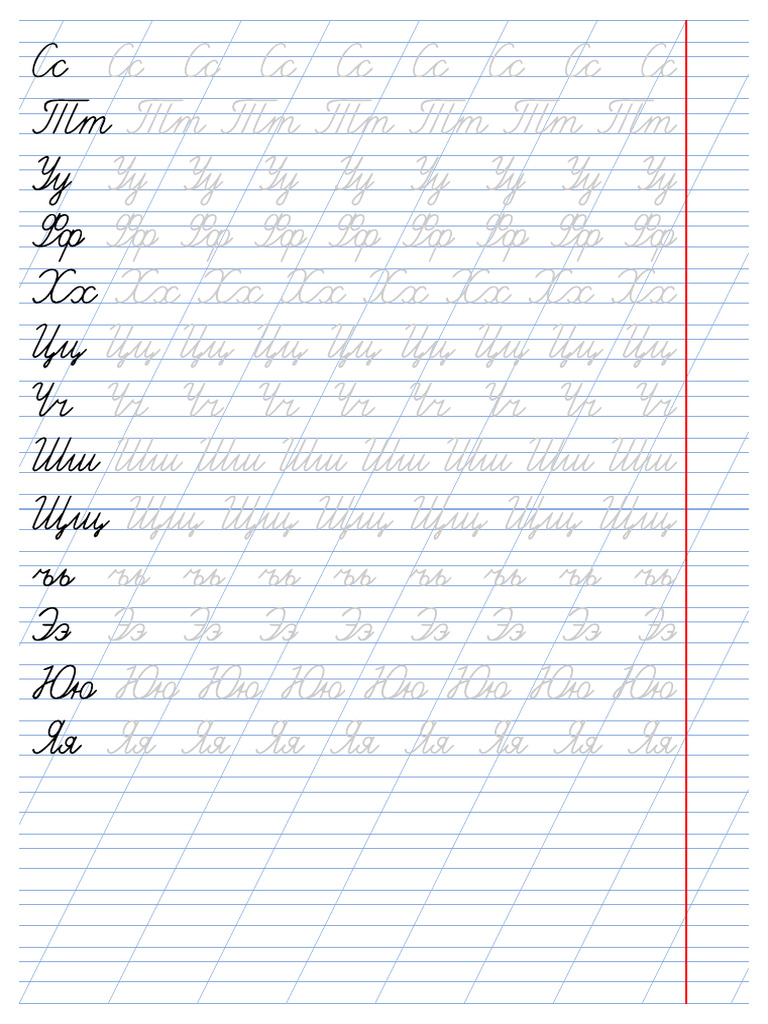 Сс Сс Сс Сс Сс Сс Сс Сс Сс
Тт Тт Тт Тт Тт Тт Тт
Уу Уу Уу Уу Уу Уу Уу Уу Уу
Фф Фф Фф Фф Фф Фф Фф Фф Фф
Хх Хх Хх Хх Хх Хх Хх Хх
Цц Цц Цц Цц Цц Цц Цц Цц Цц
Чч Чч Чч Чч Чч Чч Чч Чч Чч
Шш Шш Шш Шш Шш Шш Шш Шш
Щщ Щщ Щщ Щщ Щщ Щщ Щщ
ъь ъь ъь ъь ъь ъь ъь ъь ъь
Ээ Ээ Ээ Ээ Ээ Ээ Ээ Ээ Ээ
Юю Юю Юю Юю Юю Юю Юю Юю
Яя Яя Яя Яя Яя Яя Яя Яя Яя